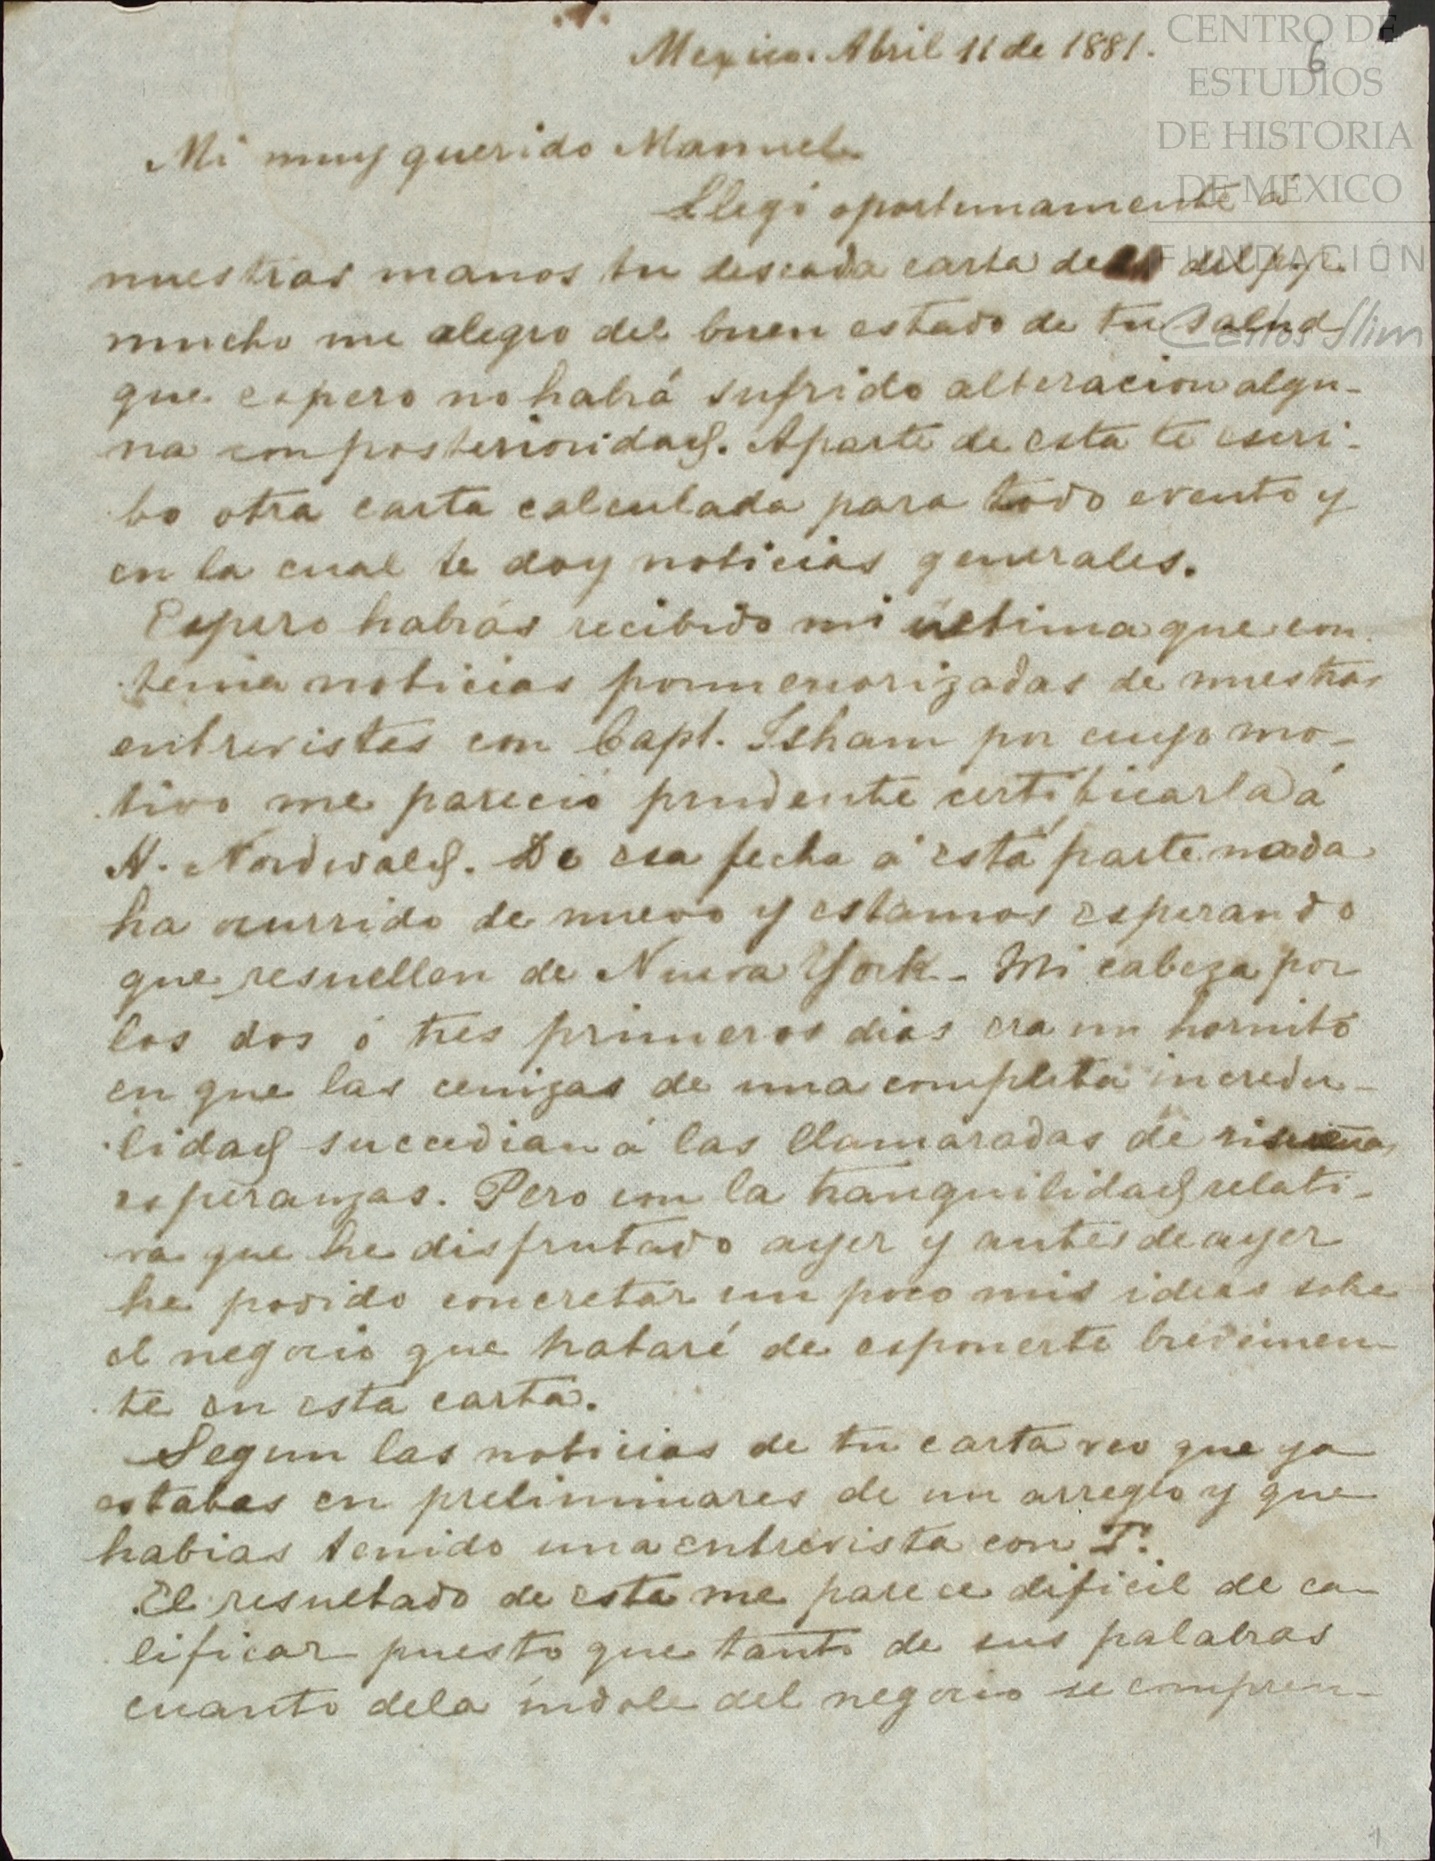 CENTRO DE
ESTUDIOS
DE HISTORIA
DE MÉXICO
FUNDACIÓN
Carlos Slim
6
Mexico. Abril 11 de 1881.
Mi muy querido Manuel
Llegó oportunamente á
nuestras manos tu deseada carta de del
mucho me alegro del buen estado de tu salud
que espero no habrá sufrido alteracion algu-
na con posterioridad. Aparte de esta te escri-
bo otra carta calculada para todo evento y
en la cual te doy noticias generales.
Espero habrás recibido mi última que con
tenia noticias pormenorizadas de nuestras
entrevistas con Capt. Isham por cuyo mo-
tivo me pareció prudente certificarla á
H. Nordwald. De esa fecha á esta parte nada
ha ocurrido de nuevo y estamos esperando
que resuellen de Nueva York - Mi cabeza por
los dos ó tres primeros dias era un hornito
en que las cenizas de una completa incredu-
lidad succedian á las llamaradas de risueñas
esperanzas. Pero con la tranquilidad relati-
va que he disfrutado ayer y antes de ayer
he podido concretar un poco mis ideas sobre
el negocio que trataré de esponerte brevemen-
te en esta carta.
Segun las noticias de tu carta veo que ya
estabas en preliminares de un arreglo y que
habias tenido una entrevista con T.
El resultado de esta me parece dificil de ca-
lificar puesto que tanto de sus palabras
cuanto de la índole del negocio se compren-
1